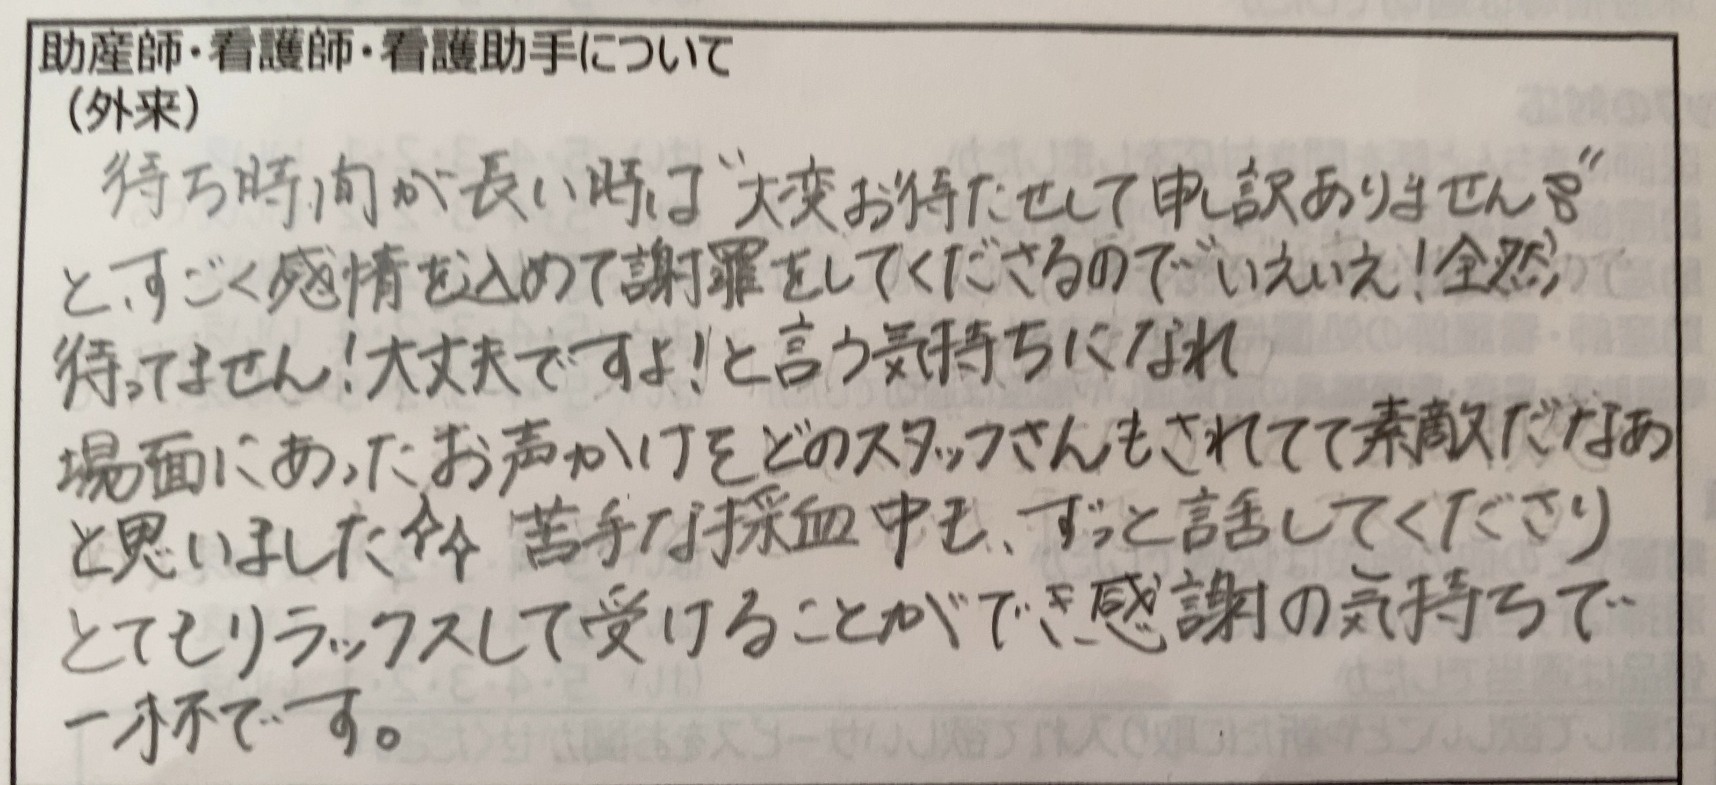 助産師・看護師・看護助手について
（外来）
待ち時間が長い時は“大変お待たせして申し訳ありません”
と、すごく感情を込めて謝罪をしてくださるので“いえいえ！全然
待ってません！大丈夫ですよ！と言う気持ちになれ
場面にあったお声かけをどのスタッフさんもされてて素敵だなあ
と思いました☆☆ 苦手な採血中も、ずっと話してくださり
とてもリラックスして受けることができ感謝の気持ちで
一杯です。